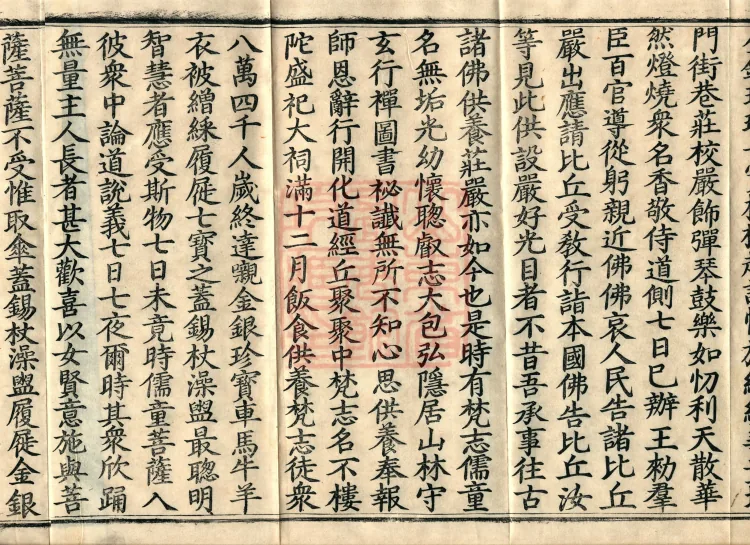 門街巷莊校嚴飾彈琴鼓樂如忉利天散華
然燈燒衆名香敬侍道側七日已辦王勑羣
臣百官導從躬親近佛佛哀人民告諸比丘
嚴出應請比丘受教行詣本國佛告比丘汝
等見此供設嚴好光目者不昔吾承事往古
諸佛供養莊嚴亦如今也是時有梵志儒童
名無垢光幼懷聰叡志大包弘隱居山林守
玄行禪圖書祕讖無所不知心思供養奉報
師恩辭行開化道經丘聚聚中梵志名不樓
陀盛祀大祠滿十二月飯食供養梵志徒衆
八萬四千人歲終達嚫金銀珍寶車馬牛羊
衣被繒綵履屣七寶之蓋錫杖澡盥最聰明
智慧者應受斯物七日未竟時儒童菩薩入
彼衆中論道說義七日七夜爾時其衆欣踊
無量主人長者甚大歡喜以女賢意施與菩
薩菩薩不受惟取傘蓋錫杖澡盥履屣金銀